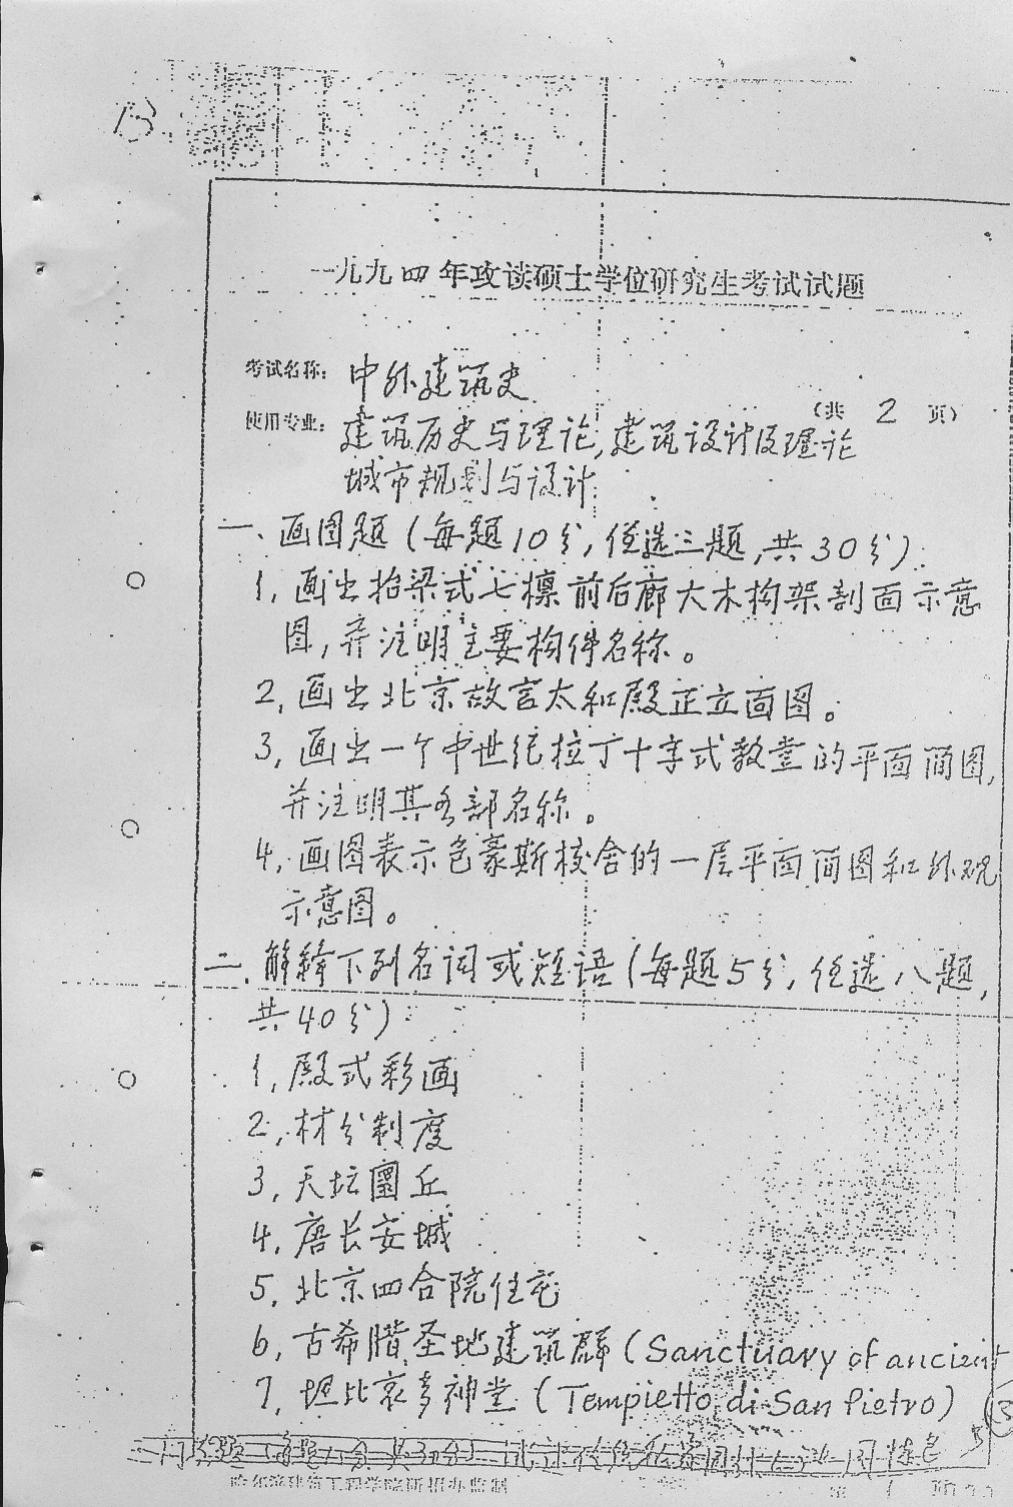 13.
一九九四年攻读硕士学位研究生考试试题
考试名称: 中外建筑史
(共 2 页)
使用专业: 建筑历史与理论,建筑设计及理论
城市规划与设计
一、画图题(每题10分,任选三题,共30分):
1,画出抬梁式七檩前后廊大木构架剖面示意
图,并注明主要构件名称。
2,画出北京故宫太和殿正立面图。
3,画出一个中世纪拉丁十字式教堂的平面简图,
并注明其各部名称。
4,画图表示包豪斯校舍的一层平面简图和外观
示意图。
二、解释下列名词或短语(每题5分,任选八题,
共40分):
1,殿式彩画
2,材分制度
3,天坛圜丘
4,唐长安城
5,北京四合院住宅
6,古希腊圣地建筑群(Sanctuary of ancient
7,坦比哀多神堂(Tempietto di San Pietro)
哈尔滨建筑工程学院研招办监制